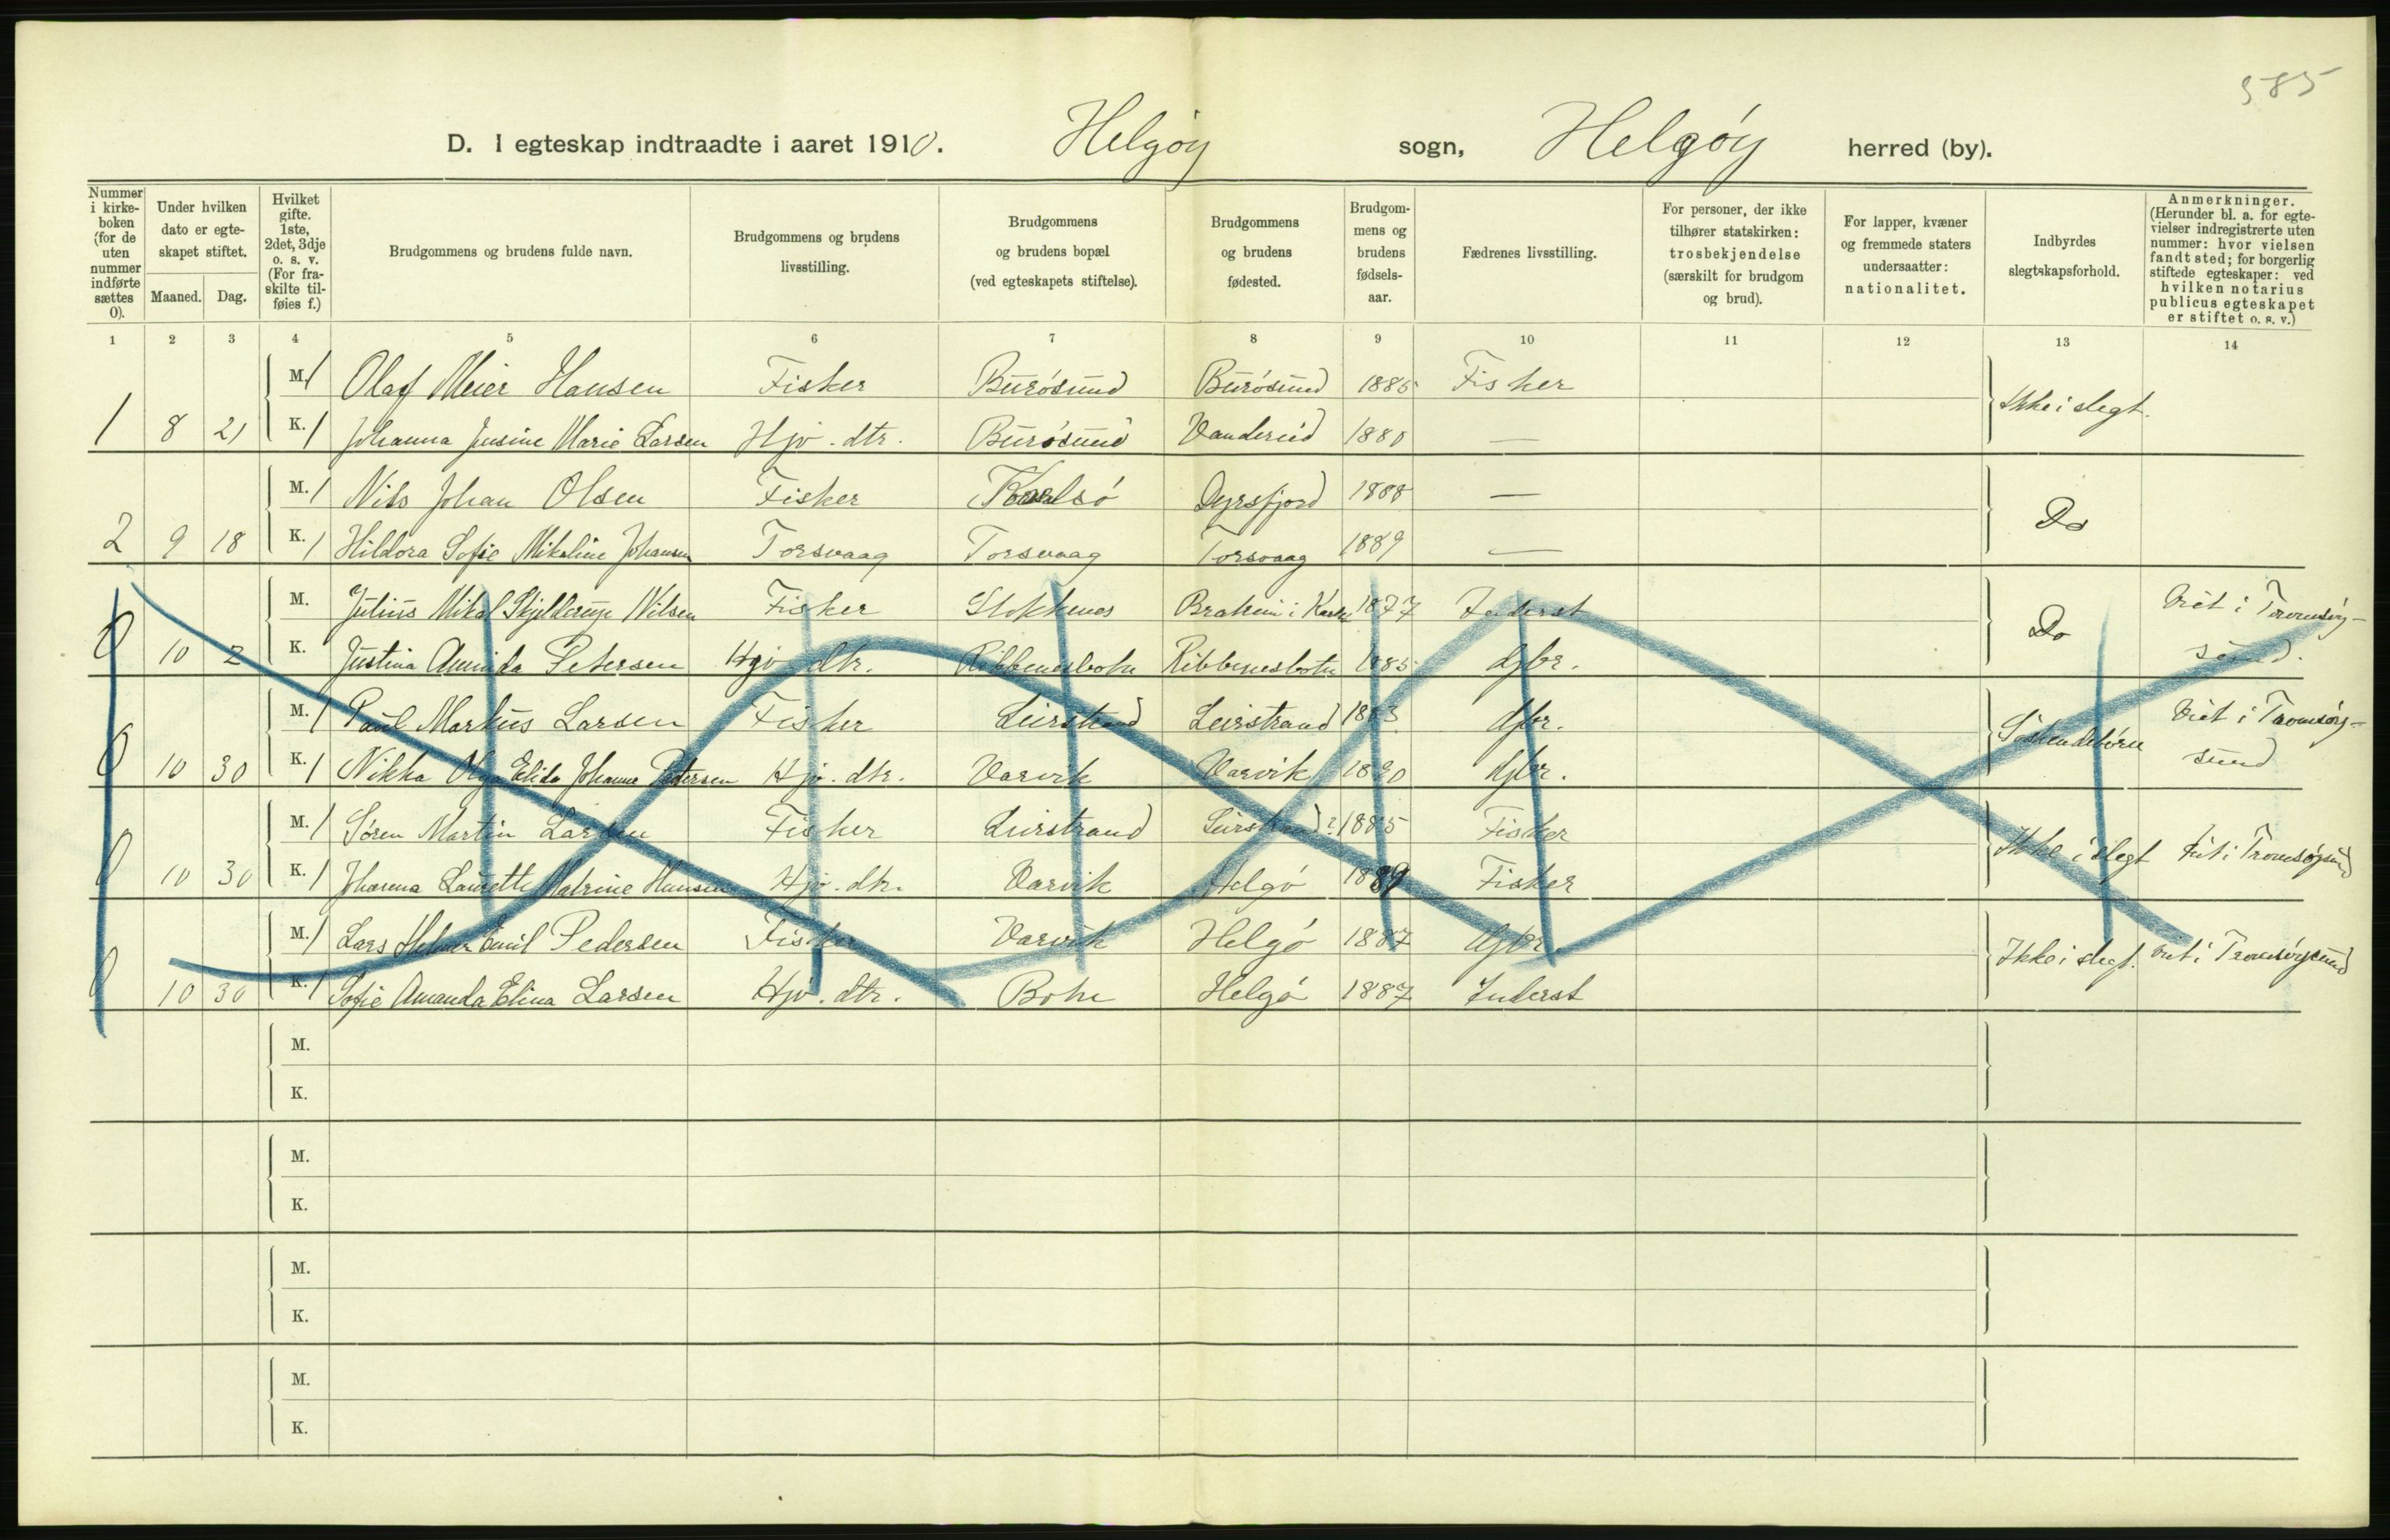 585
D. I egteskap indtraadte i aaret 1910. Helgøy sogn, Helgøy herred (by).
Nummer i kirke-boken (for de uten nummer indførte sættes 0).
Under hvilken dato er egte-skapet stiftet.
Maaned. Dag.
Hvilket gifte. 1ste, 2det, 3dje o. s. v. (For fra-skilte til-føies f.)
Brudgommens og brudens fulde navn.
Brudgommens og brudens livsstilling.
Brudgommens og brudens bopæl (ved egteskapets stiftelse).
Brudgommens og brudens fødested.
Brudgom-mens og brudens fødsels-aar.
Fædrenes livsstilling.
For personer, der ikke tilhører statskirken: trosbekjendelse (særskilt for brudgom og brud).
For lapper, kvæner og fremmede staters undersaatter: nationalitet.
Indbyrdes slegtskapsforhold.
Anmerkninger. (Herunder bl. a. for egte-vielser indregistrerte uten nummer: hvor vielsen fandt sted; for borgerlig stiftede egteskaper: ved hvilken notarius publicus egteskapet er stiftet o. s. v.)
1 2 3 4 5 6 7 8 9 10 11 12 13 14
M. 1 Olaf Meier Hansen Fisker Burøsund Burøsund 1885 Fisker
1 8 21 K. 1 Johanna Jusine Marie Larsen Hjv. dtr. Burøsund 1880 — Ikke i slegt.
M. 1 Nils Johan Olsen Fisker Karlsø Dyrsfjord 1888 —
2 9 18 K. 1 Hildora Sofie Mikaline Johansen Torsvaag Torsvaag Torsvaag 1889 — Do
M. Julius Mikal Skjelderup Nilsen Fisker Stokkenes 1877 Inderst Viet i Tromsøy-
0 10 2 K. Justina Aminda Petersen Hjv. dtr. Ribbenesbotn Ribbenesbotn 1885 Gbr. Do sund.
M. 1 Paul Markus Larsen Fisker Leirstrand Leirstrand 1883 Gbr. Viet i Tromsøy-
0 10 30 K. 1 Nikka Olga Elida Johanne Pedersen Hjv. dtr. Varvik Varvik 1890 Gbr. Søskendebørn sund
M. 1 Søren Martin Larsen Fisker Leirstrand Leirstrand? 1885 Fisker
0 10 30 K. 1 Laurette Hansen Hjv. dtr. Varvik Helgø 1889 Fisker Ikke i slegt Viet i Tromsøysund
M. 1 Lars Helmer Emil Pedersen Fisker Varvik Helgø 1887 Gbr.
0 10 30 K. 1 Sofie Amanda Elina Larsen Hjv. dtr. Botn Helgø 1887 Inderst Ikke i slegt. Viet i Tromsøysund
M.
K.
M.
K.
M.
K.
M.
K.